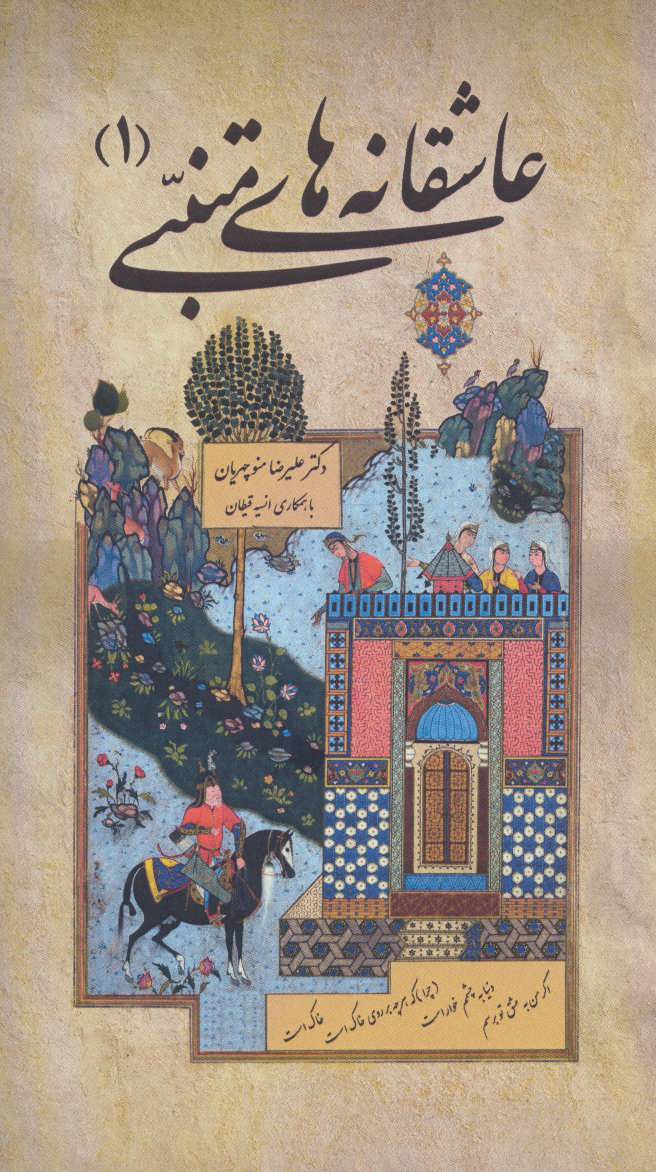 عاشقانه های متنبّی (۱)
دکتر علیرضا منوچهریان
با همکاری انسیه قیطان
اگر من به عشق تو برسم
دنیا به چشم خوار است
(چرا) که هر چه بر روی خاک است
خاک است